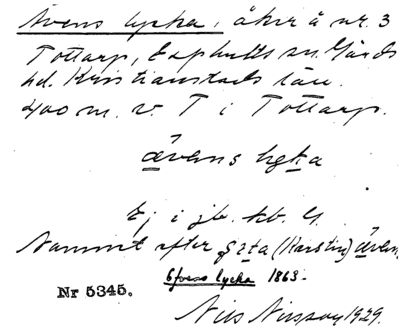 Ävens lycka, åker å nr. 3
Tottarp, Exphults sn. Gärds
hd. Kristianstads län.
400 m. v. T i Tottarp.
ävens lyka
Ej i jb. kb. G.
Namnet efter (Karstin) ävens
Efvens lycka 1863.
Nr 5345.
Nils Nilsson 1929.